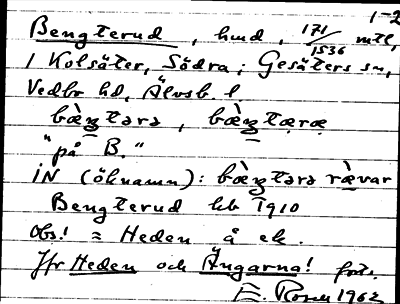 1-2
Bengterud, hmd, 171/1536 mtl,
i Kolsäter, Södra; Gesäters sn,
Vedbo hd, Älvsb. l
bæ̀ŋtərə, bæ̀ŋtæræ
"på B."
IN (öknamn): bæ̀ŋtərə rævar
Bengterud kb 1910
Obs! = Heden å ek.
Jfr Heden och Ängarna! forts.
E. Rosell 1962